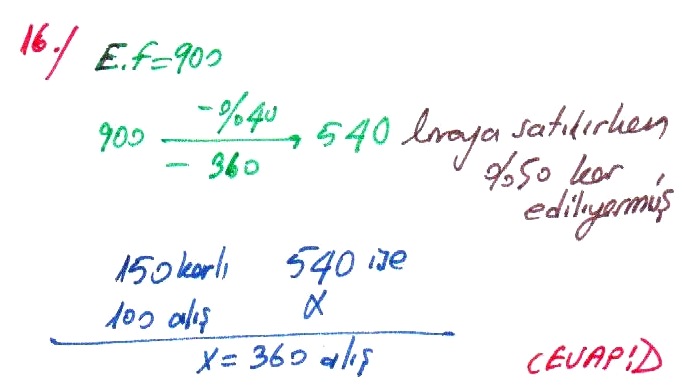 16./ E.f=900
-%40
900 → 540 liraya satılırken
- 360
%50 kar
ediliyormuş
150 karlı 540 ise
100 alış x
x = 360 alış
CEVAP: D